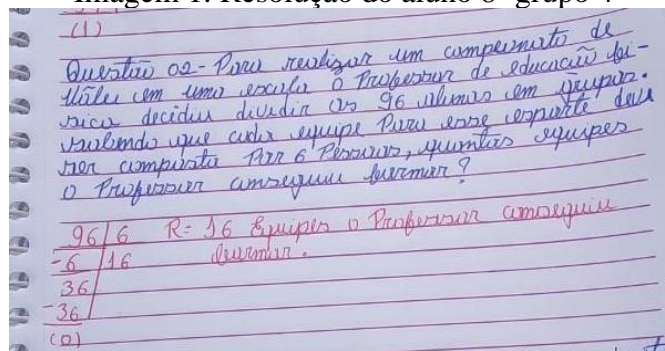 (1)
Questão 02 - Para realizar um campeonato de
Vôlei em uma escola o Professor de educação fí-
sica decidiu dividir os 96 alunos em grupos.
sabendo que cada equipe Para esse esporte deve
ser composta Por 6 Pessoas, quantas equipes
o Professor conseguiu formar?
96 | 6 R= 16 Equipes o Professor conseguiu
-6 | 16 formar.
36
-36
(0)